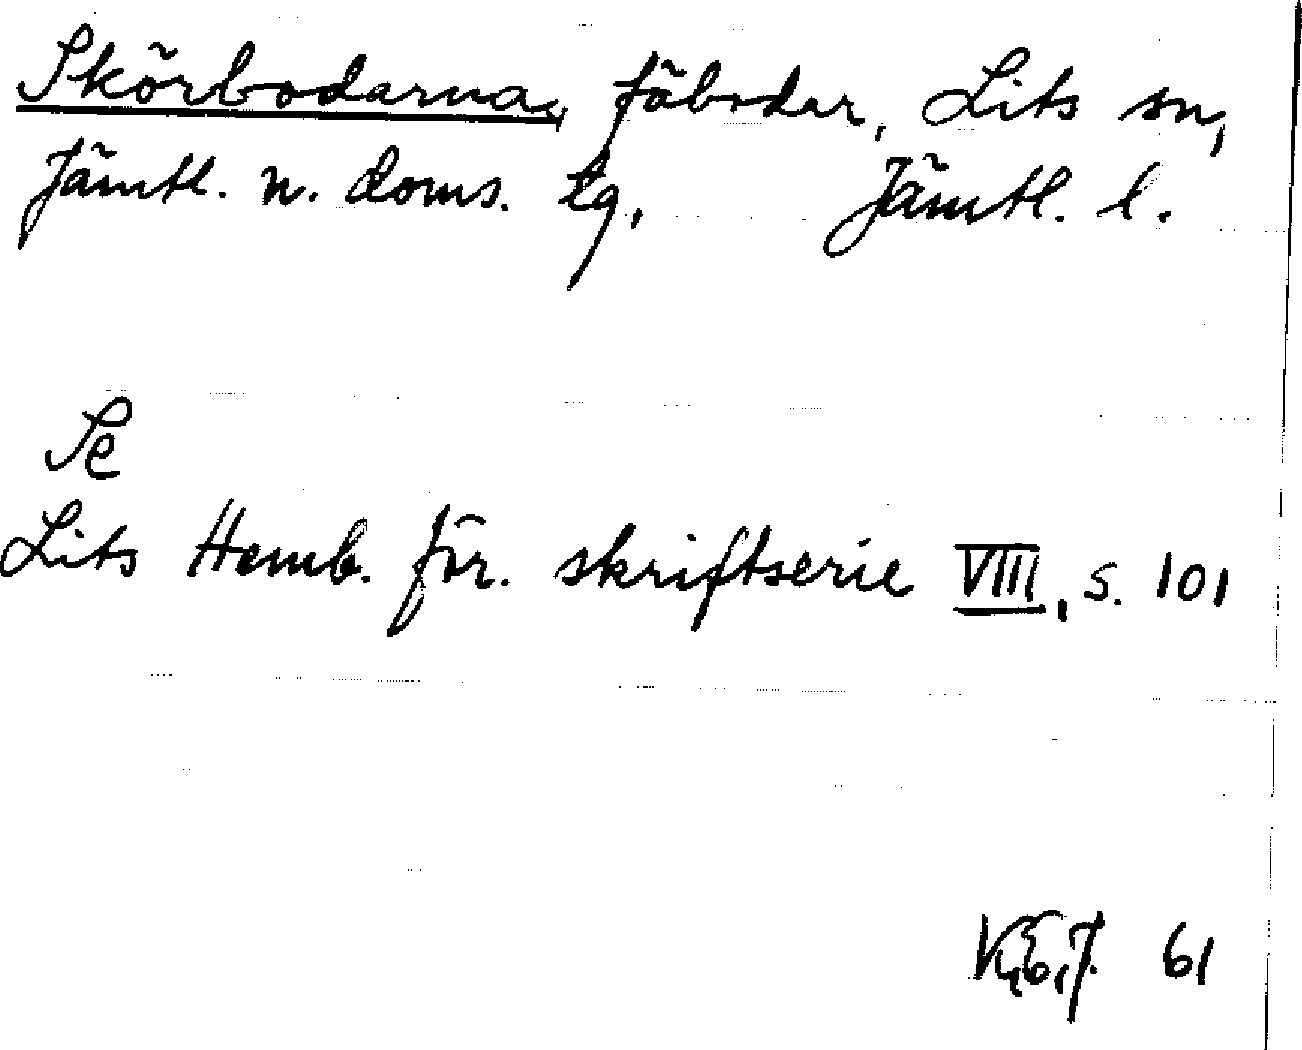 Skörbodarna, fäbodar, Lits sn,
Jämtl. n. doms. tg, Jämtl. l.
Se
Lits Hemb. för. skriftserie VIII, s. 101
61